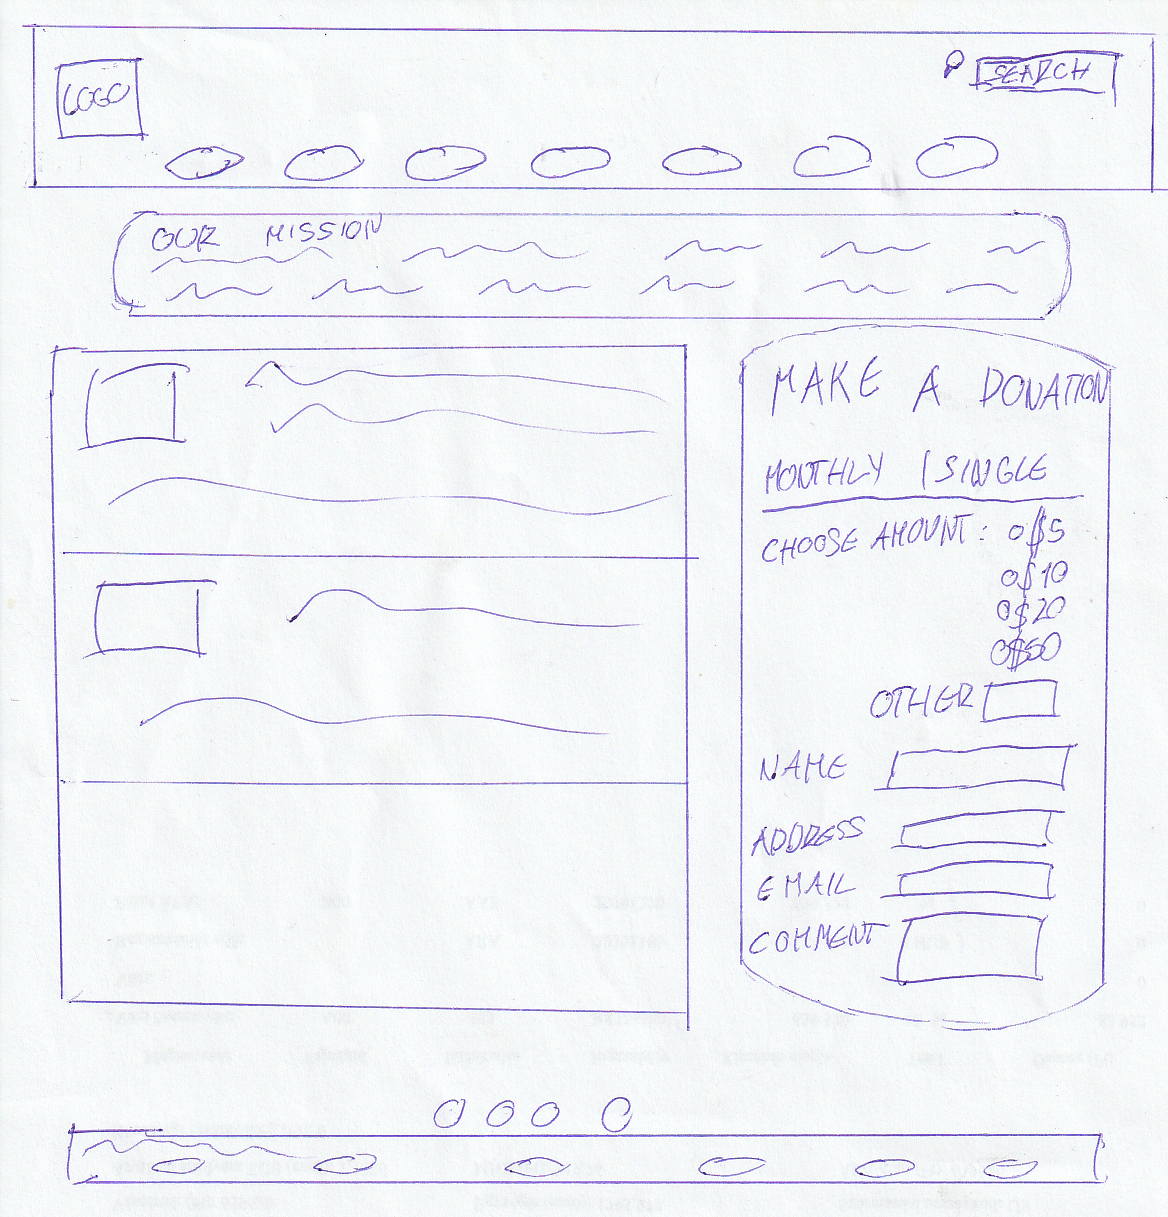 LOGO
SEARCH
OUR MISSION
MAKE A DONATION
MONTHLY | SINGLE
CHOOSE AMOUNT: $5
$10
$20
$50
OTHER
NAME
ADDRESS
EMAIL
COMMENT